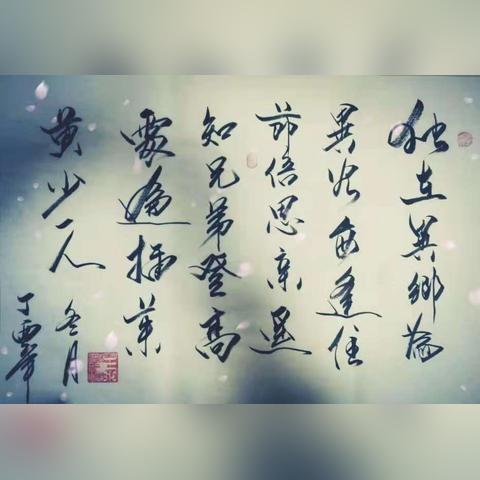 独在異鄉為
異客每逢佳
節倍思亲遥
知兄弟登高
處遍插茱
萸少一人
丁酉年
冬月